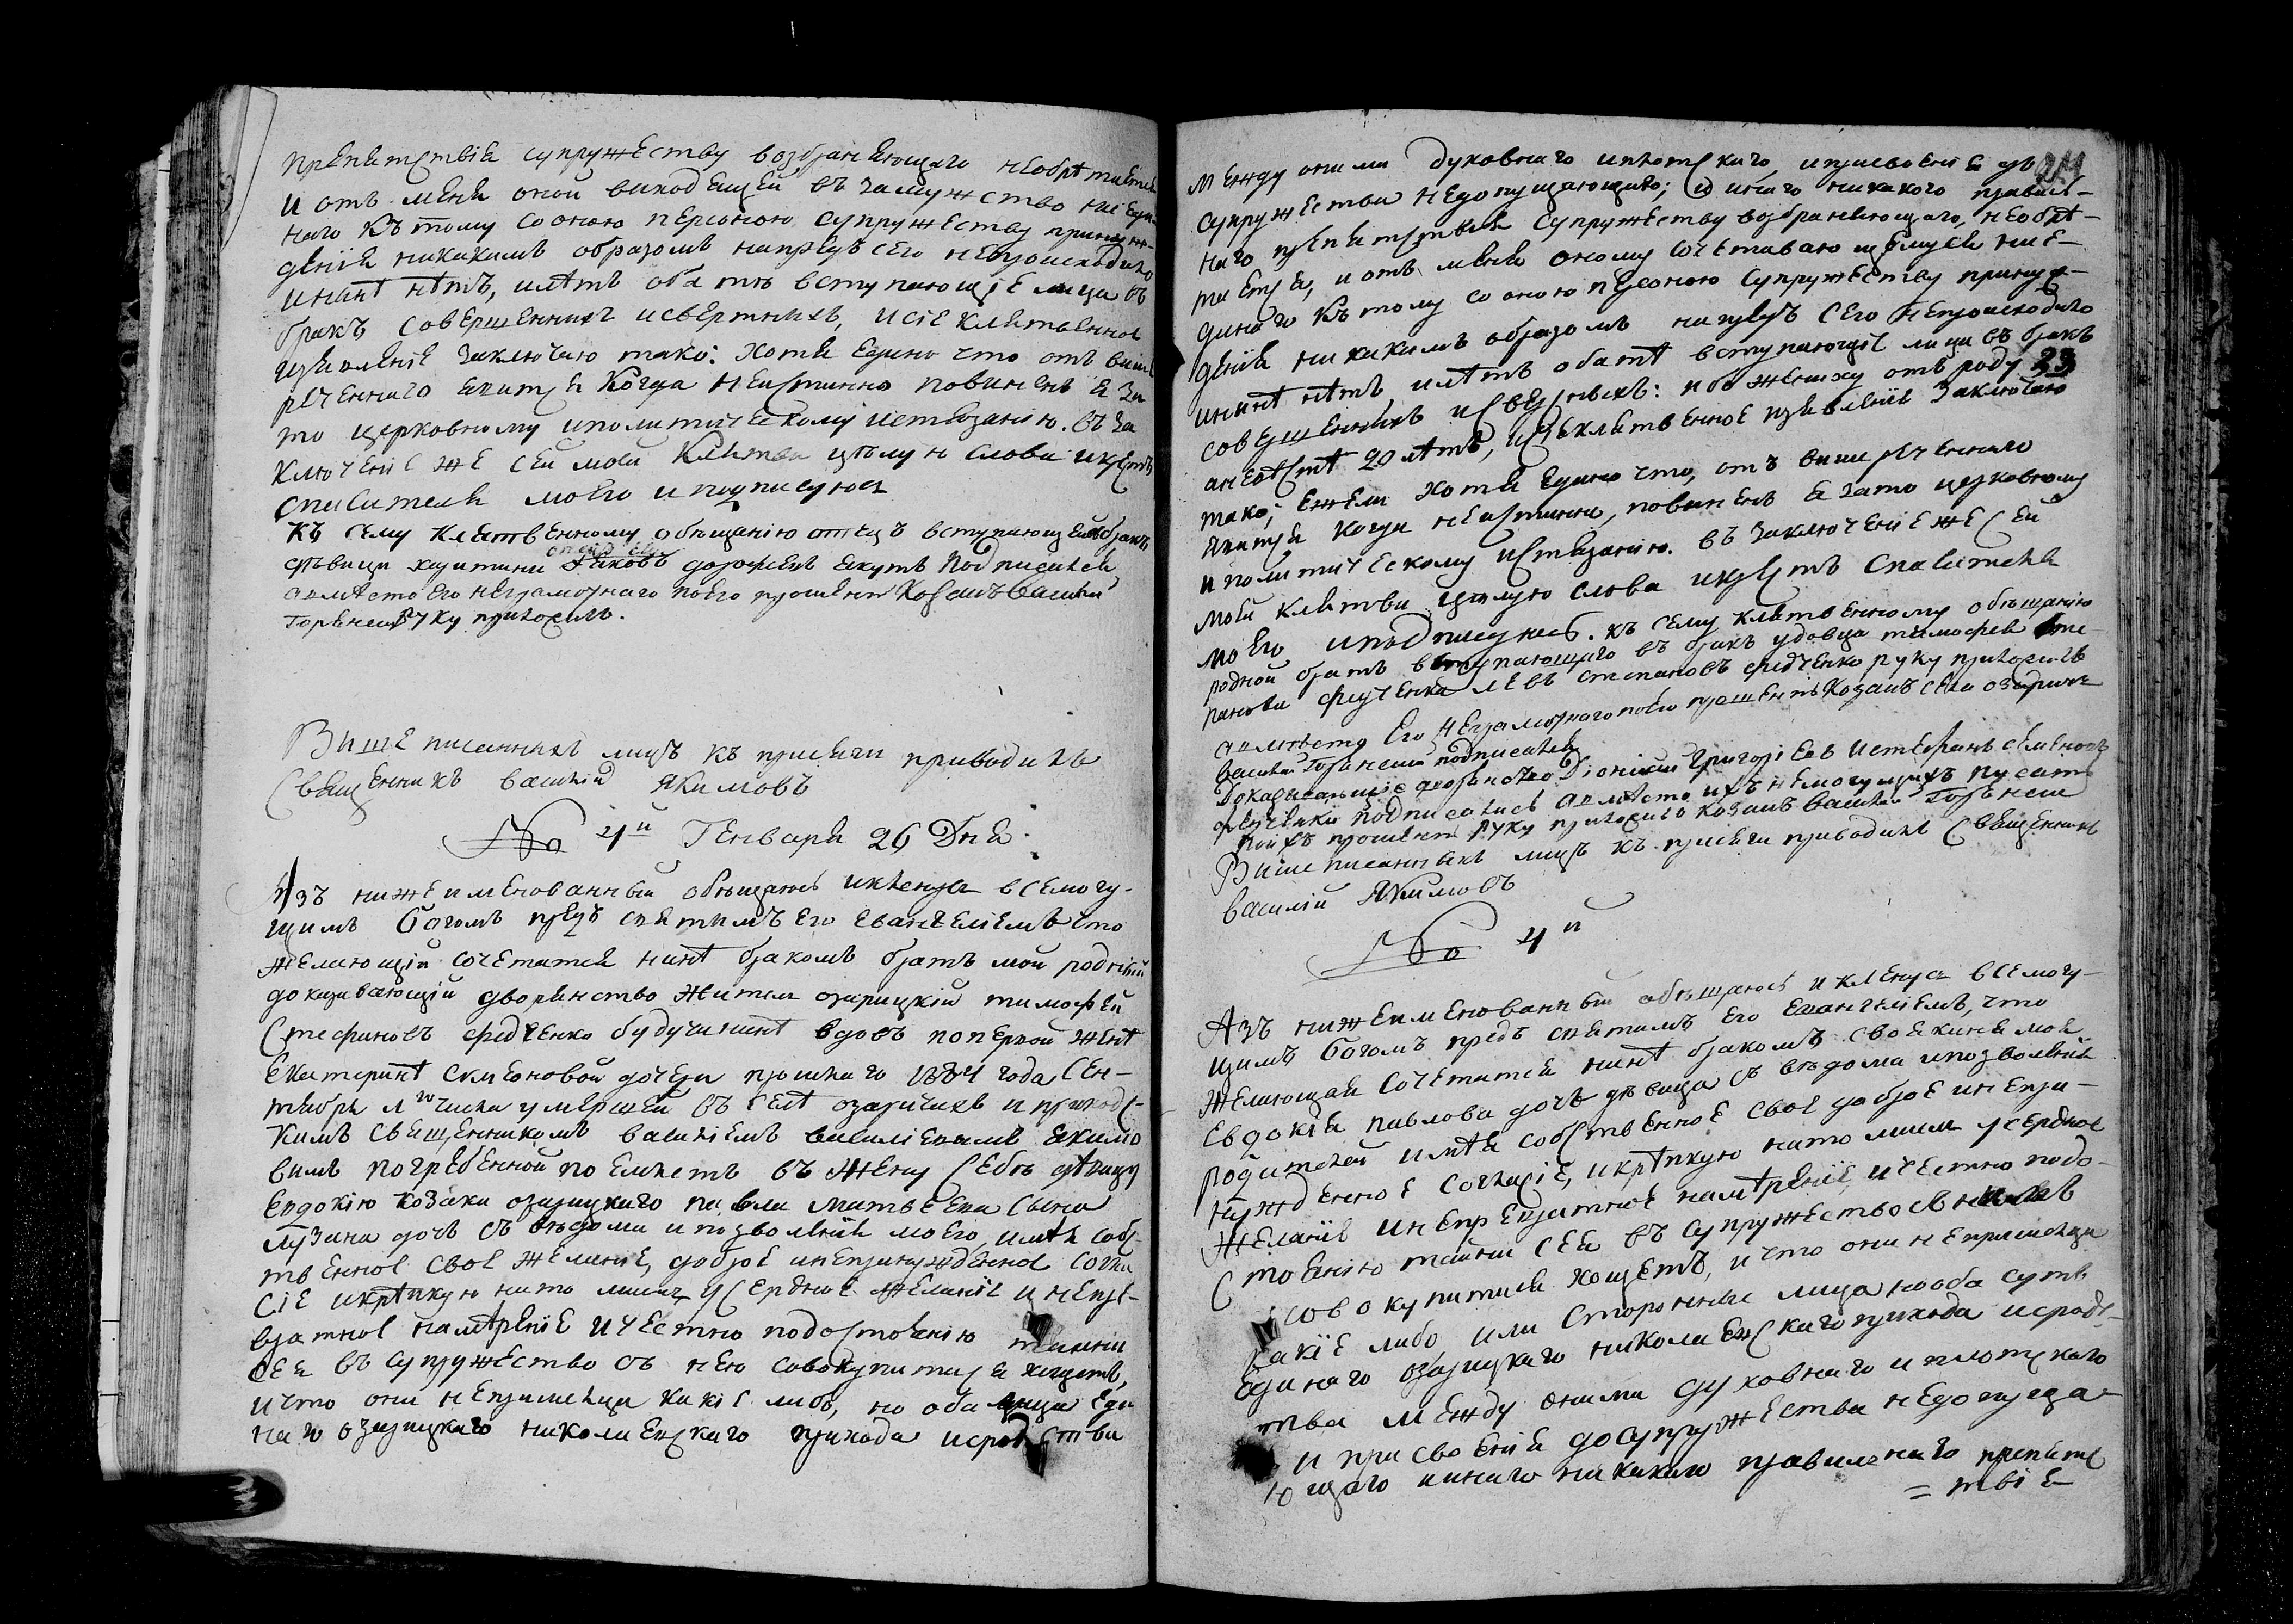 препятствія супружеству возбраняющаго необрѣтается
и отъ мене оной виходящей въ замужство ниедн-
наго къ тому со оною персоною супружеству принуж-
денія никакимъ образомъ напредъ сего непроисходило
и нинѣ нѣтъ, и лѣтъ оба тѣ вступающіе лица въ
бракъ совершеннихъ и сверстнихъ, и сіе клятвенное
изявленіе заключаю тако: хотя едино что отъ више
реченнаго явится когда неистинно повиненъ я за
то церковному и политическому истязанію. въ за
ключеніе же сей моей клятви цѣлую слова и крестъ
спасителя моего и подписуюся
къ сему клятвенному обѣщанію отецъ вступающей въ бракъ
дѣвици харитини Яковъ дорофеевъ якутъ подписался
а вмѣсто его неграмотнаго по его прошенію козакъ василій
Горяней руку приложилъ.
Вишеписанныхъ лицъ къ присяги приводилъ
Священникъ василій Якимовъ
№ 4й Генваря 26 Дня:
Азъ нижеименованный обѣщаюсь и кленуся всемогу-
щимъ богомъ предъ святимъ его евангеліемъ что
желающій сочетатся нинѣ бракомъ братъ мой родній
доказивающій дворянство житель озарицкій тимофей
Стефановъ федченко будучи нинѣ вдовъ по первой женѣ
екатеринѣ симеоновой дочери прошлаго 1884 года Сен-
тября числа умершей въ селѣ озаричахъ и приход-
кимъ священникомъ василіемъ василіевимъ якимо
вимъ погребенной поемлетъ въ жену себѣ дѣвицу
Евдокію козака озарицкаго павла матвеева сына
лузана дочь съ вѣдома и позволенія моего, имѣя собс
твенное свое желаніе, доброе и непринужденное согла
сіе и крѣпкую на то мисль усердное желаніе и непре-
вратное намѣреніе и честно подостоянію тайни
сея въ супружество съ нею совокупитися хощетъ,
и что они непришелци какіе либо, но оба лица еди
наго озарицкаго николаевскаго прихода и сродства
между оними духовнаго и плотскаго, и присвоенія до
супружества недопущающаго; и инаго никакого правил-
наго препятствія супружеству возбраняющаго, необрѣ-
тается, и отъ мене оному сочетаваю щемуся ние-
динаго къ тому со оною персоною супружеству принуж-
денія никакимъ образомъ напредъ сего непроисходило
и нинѣ нѣтъ, и лѣтъ оба тѣ вступающіе лица въ бракъ
совершеннихъ и сверстнихъ: ибо жениху отъ роду 33
а невѣстѣ 20 лѣтъ, и сіе клятвенное изявленіе заключаю
тако; ежели хотя едино что, отъ вишереченнаго
явится когда неистинно, повиненъ я зато церковному
и политическому истязанію. въ заключеніе же сей
моей клятви цѣлую слова и крестъ спасителя
моего и подписуюсь. къ сему клятвенному обѣщанію
родной братъ вступающаго въ бракъ удовца тимофея сте-
фанова федченка левъ степановъ федченко руку приложилъ
а вмѣсто его неграмотнаго по его прошенію козакъ села озаричъ
василій Горяней подписался
Доказывающіе дворянство Діонисій Григоріевъ и стефанъ семеновъ
федченки подписались а вмѣсто ихъ немогущихъ писать
по ихъ прошенію руку приложилъ козакъ василій Горяней
Вишеписанныхъ лицъ къ присяги приводилъ Священникъ
василій Якимовъ
№ 4й
Азъ нижеименованный обѣщаюсь и кленуся всемогу-
щимъ богомъ предъ святимъ его евангеліемъ, что
желающая сочетатся нинѣ бракомъ своякиня моя
Евдокія павлова дочь дѣвица съ вѣдома и позволенія
родителей имѣя собственное свое доброе и неприн-
нужденное согласіе, и крѣпкую на то мисль усердное
желаніе и непревратное намѣреніе, и честно подо-
стоянію тайни сея въ супружество съ нимъ
совокупитися хощетъ, и что они непришелци
какіе либо, или сторонніе лица но оба суть
единаго озарицкаго николаевскаго прихода и сродс-
тва между оними духовнаго и плотскаго
и присвоенія до супружества недопуща-
ющаго и инаго никакого правилнаго препятс
= твія